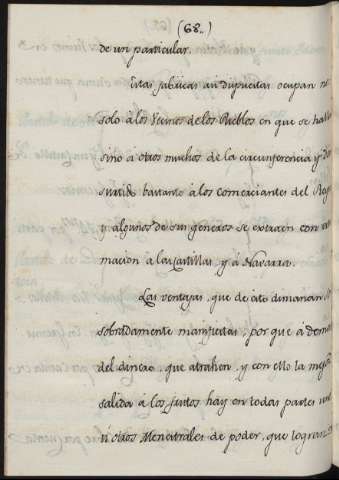 (68..
de un particular.
Estas fabricas asi dispuestas ocupan no
solo á los Vecinos de los Pueblos en que se hal
sino á otros muchos de la circunferencia y dan
surtido bastante á los comerciantes del Rey
y algunos de sus géneros se extraen con
macion á las Castillas y á Navarra.
Las ventajas, que de esto dimanan
sobradamente manifiestas, por que á demas
del dinero, que atrahen, y con ello la mejor
salida á los frutos hay en todas partes
ú otros Menestrales de poder, que logran